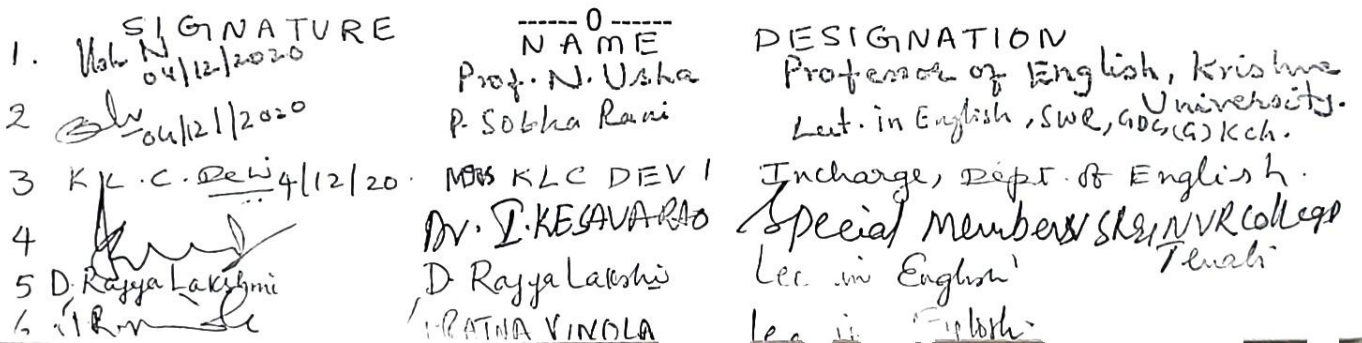 ------ 0 ------
SIGNATURE NAME DESIGNATION
1. Usha N 04/12/2020 Prof. N. Usha Professor of English, Krishna University.
2 04/12/2020 P. Sobha Rani Lect. in English, SWR, GDC(G) Kch.
3 K.L.C. Devi 4/12/20. KLC DEVI Incharge, Dept. of English.
4 Dr. I. KESAVARAO Special Member VSR & NVR College Tenali
5 D. Rajya Lakshmi D. Rajya Lakshmi Lec in English
6 RATNA VINOLA Lec in English